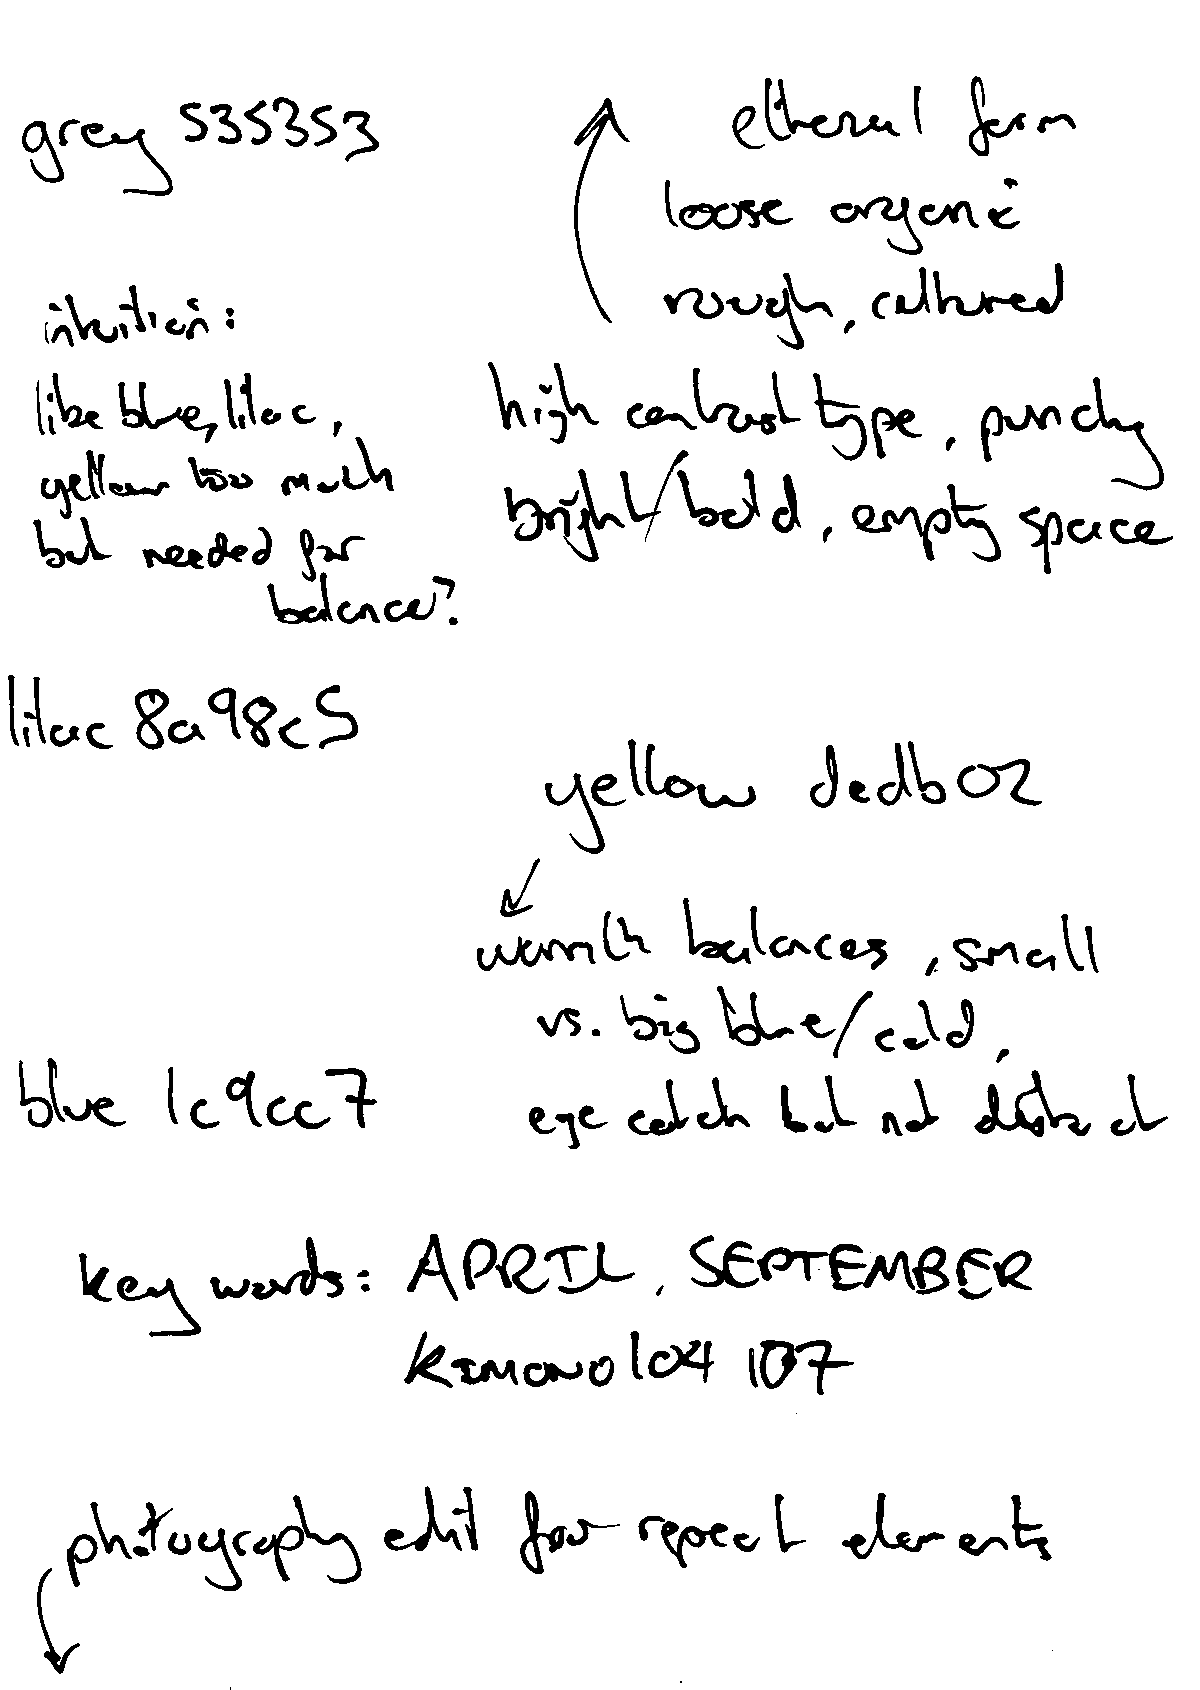 grey 535353
intuition:
like blue, lilac,
yellow too much
but needed for
balance?
etherul form
loose organic
rough, cultured
high contrast type, punchy
bright/bold, empty space
lilac 8a98c5
yellow dedb02
warmth balaces, small
vs. big blue/cold,
eye catch but not distract
blue 1c9cc7
key words: APRIL, SEPTEMBER
KIMONO 104 107
photography edit for repeat elements